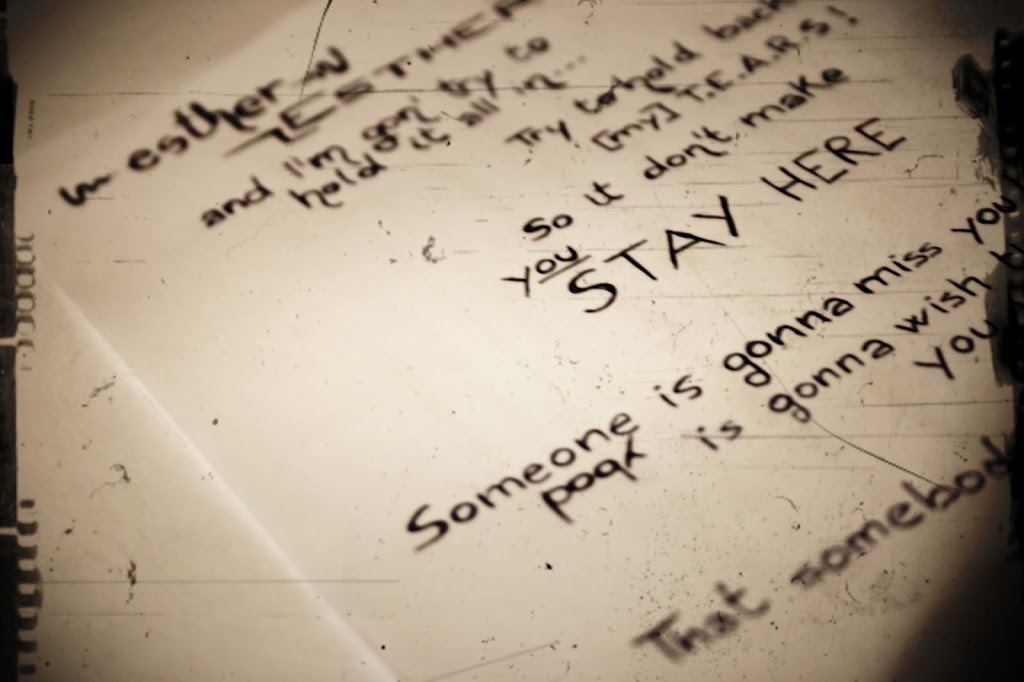 esther
ESTHER
and I'm gon' try to
hold it all in...
Try to hold back
[my] T.E.A.R.S!
So it don't make
you STAY HERE
Someone is gonna miss you
is gonna wish
you
That somebod